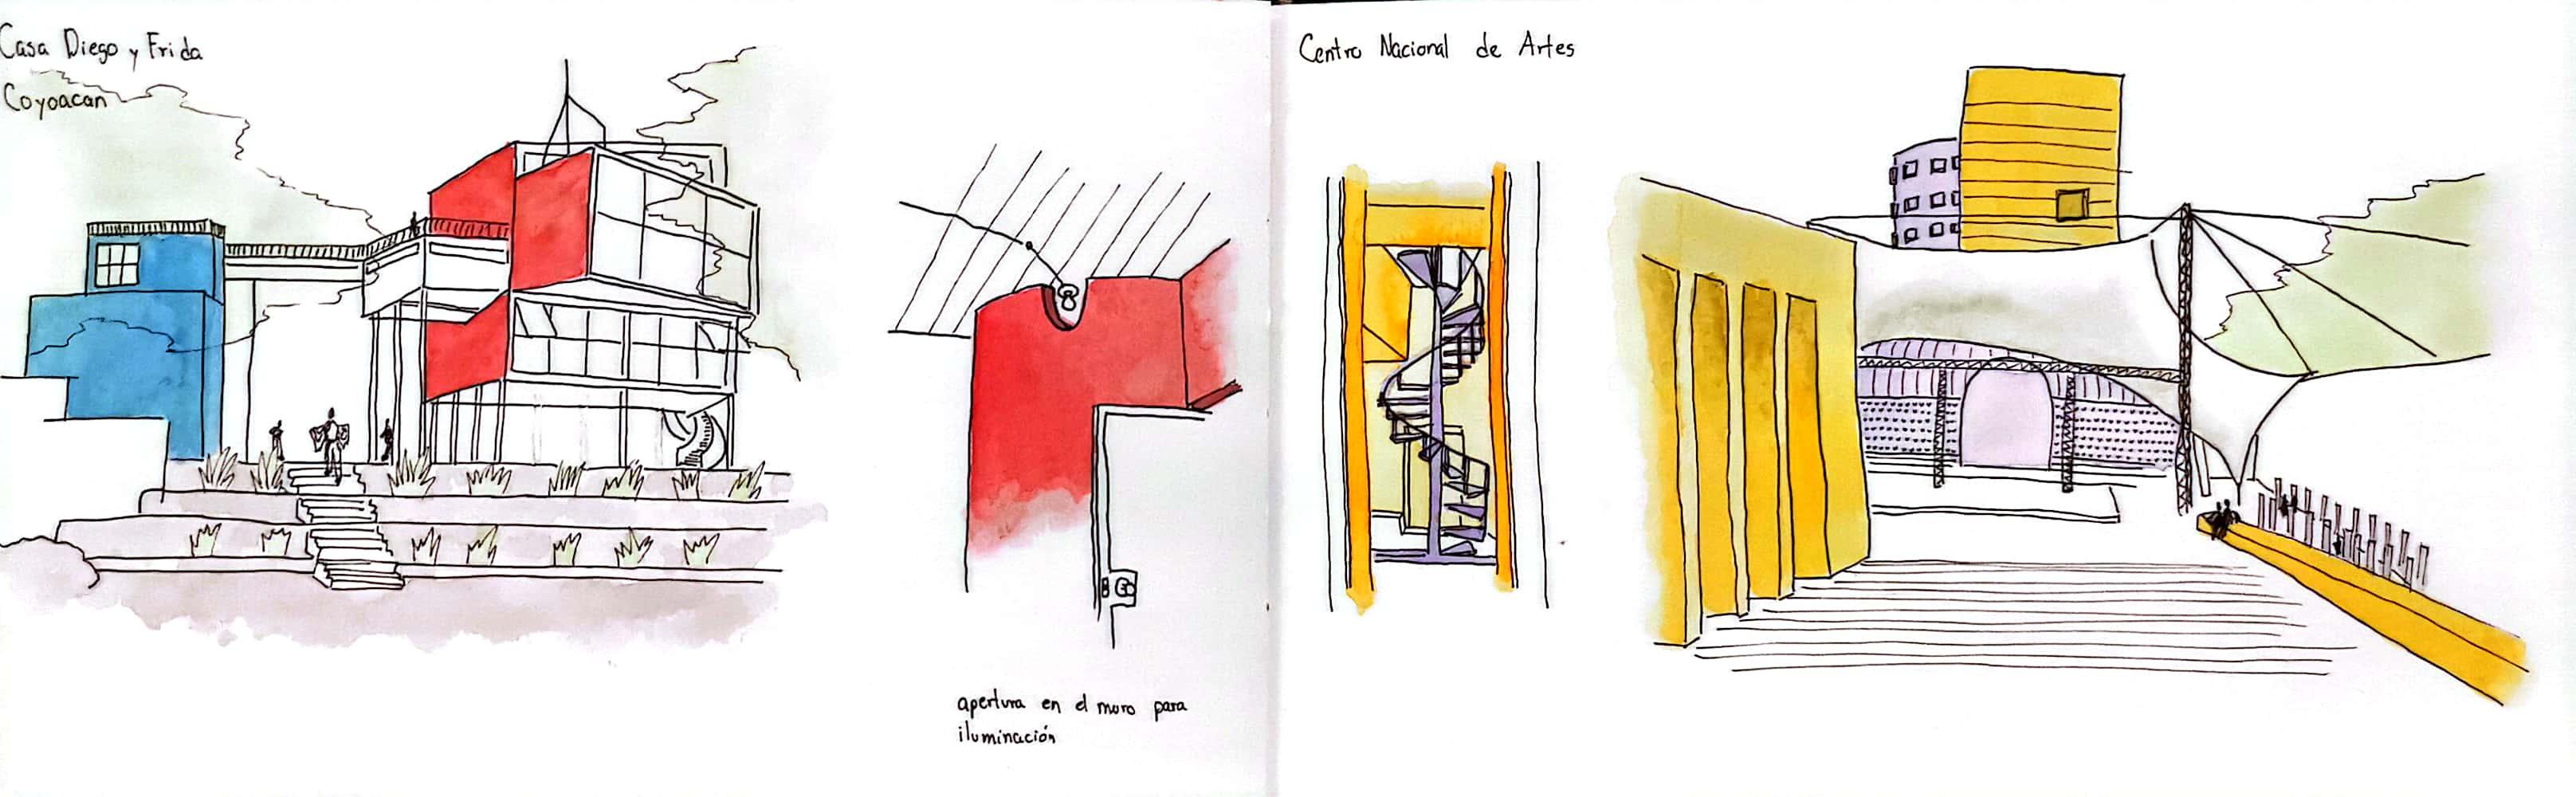 Casa Diego y Frida
Coyoacan
apertura en el muro para
iluminación
Centro Nacional de Artes